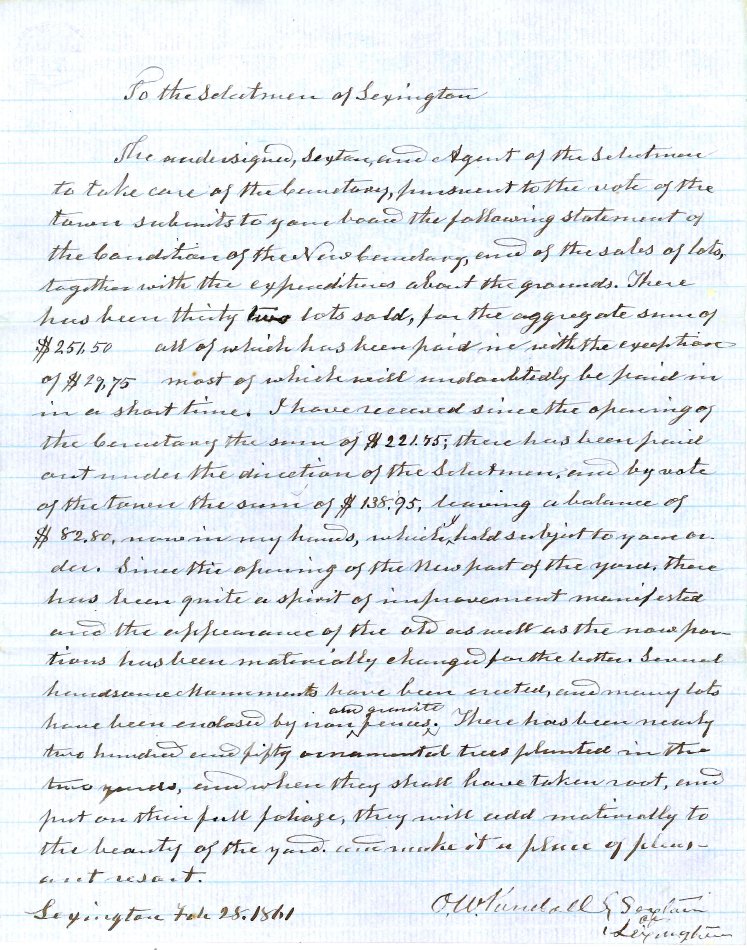 To the Selectmen of Lexington
The undersigned, Sexton, and Agent of the Selectmen
to take care of the Cemetary, pursuent to the vote of the
town submits to your board the following statement of
the Condition of the New Cemetary, and of the sales of lots,
together with the expenditures about the grounds. There
has been thirty two lots sold, for the aggregate sum of
$251,50 all of which has been paid in with the exception
of $29,75 most of which will undoubtedly be paid in
in a short time. I have received since the opening of
the Cemetary the sum of $221.75; there has been paid
out under the direction of the Selectmen, and by vote
of the town the sum of $138.95, leaving a balance of
$82.80, now in my hands, which I hold subject to your or-
der. Since the opening of the New part of the yard, there
has been quite a spirit of improvement manifested
and the appearance of the old as well as the new por-
tions has been materially changed for the better. Several
handsome Monuments have been erected, and many lots
have been enclosed by iron and granite fences. There has been nearly
two hundred and fifty ornamental trees planted in the
two yards, and when they shall have taken root, and
put on their full foliage, they will add materially to
the beauty of the yard. and make it a place of pleas-
ant resort.
Lexington Feb 28. 1861 O.W. Kendall Sexton
of
Lexington